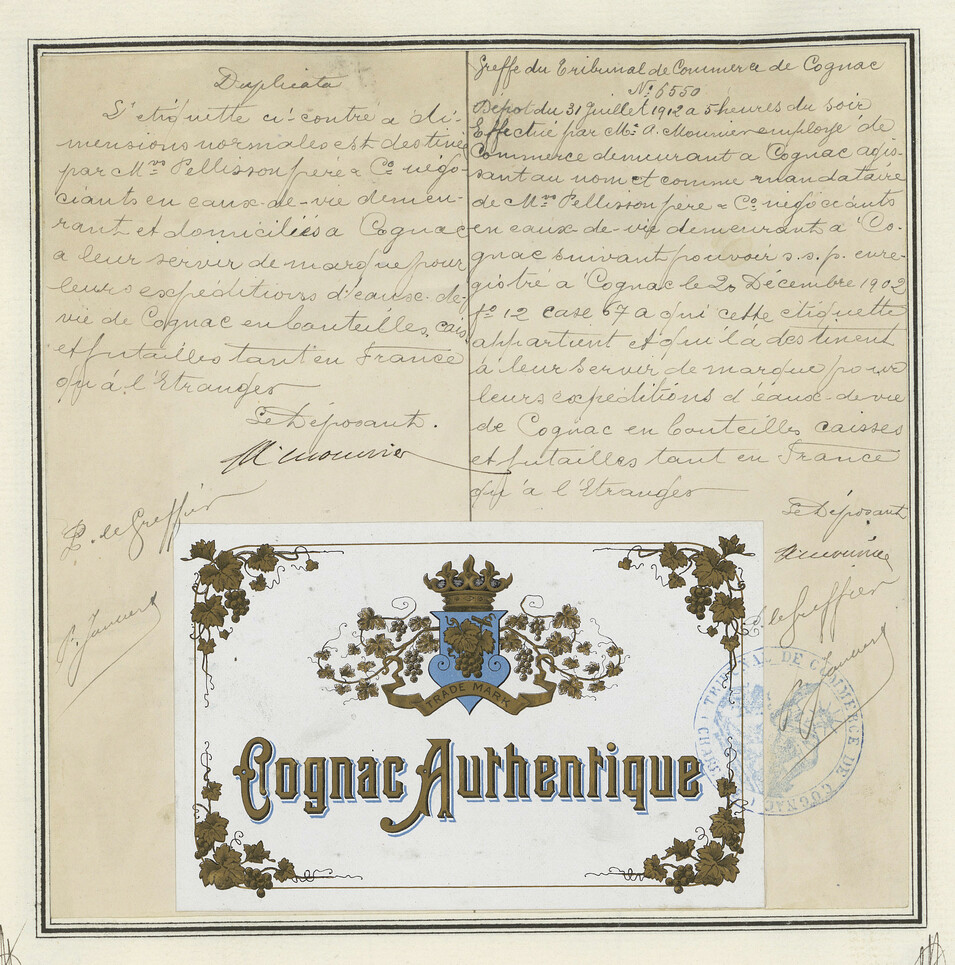 Duplicata
L'étiquette ci-contre a di-
mensions normales est destinée
par Mrs Pellisson père & Co négo-
ciants en eaux-de-vie demeu-
rant et domiciliés à Cognac
a leur servir de marque pour
leurs expéditions d'eaux-de-
vie de Cognac en bouteilles, cais.
et futailles tant en France
qu'à l'Etranger
Le Déposant.
A Mounier
P. le Greffier
Greffe du Tribunal de Commerce de Cognac
No. 6550
Dépot du 31 Juillet 1912 a 5 heures du soir
Effectué par Mr. A. Mounier employé de
Commerce demeurant a Cognac agis-
sant au nom et comme mandataire
de Mrs Pellisson père & Co négociants
en eaux-de-vie demeurant à Co-
gnac suivant pouvoir s.s.p. enre-
gistré à Cognac le 20 Décembre 1902
fo 12 case 67 a qui cette etiquette
appartient et qui la destinent
à leur servir de marque pour
leurs expéditions d'eaux-de-vie
de Cognac en bouteilles caisses
et futailles tant en France
qu'à l'Etranger
Le Déposant
A Mounier
P. le Greffier
TRADE MARK
Cognac Authentique
TRIBUNAL DE COMMERCE DE COGNAC